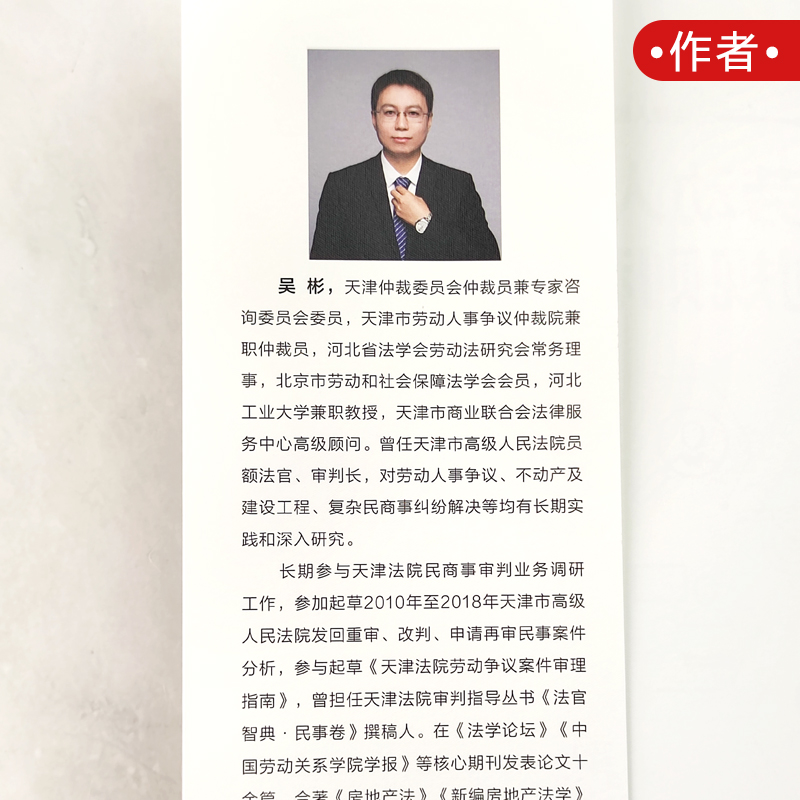 •作者•
吴 彬，天津仲裁委员会仲裁员兼专家咨
询委员会委员，天津市劳动人事争议仲裁院兼
职仲裁员，河北省法学会劳动法研究会常务理
事，北京市劳动和社会保障法学会会员，河北
工业大学兼职教授，天津市商业联合会法律服
务中心高级顾问。曾任天津市高级人民法院员
额法官、审判长，对劳动人事争议、不动产及
建设工程、复杂民商事纠纷解决等均有长期实
践和深入研究。
长期参与天津法院民商事审判业务调研
工作，参加起草2010年至2018年天津市高级
人民法院发回重审、改判、申请再审民事案件
分析，参与起草《天津法院劳动争议案件审理
指南》，曾担任天津法院审判指导丛书《法官
智典·民事卷》撰稿人。在《法学论坛》《中
国劳动关系学院学报》等核心期刊发表论文十
余篇，合著《房地产法》《新编房地产法学》